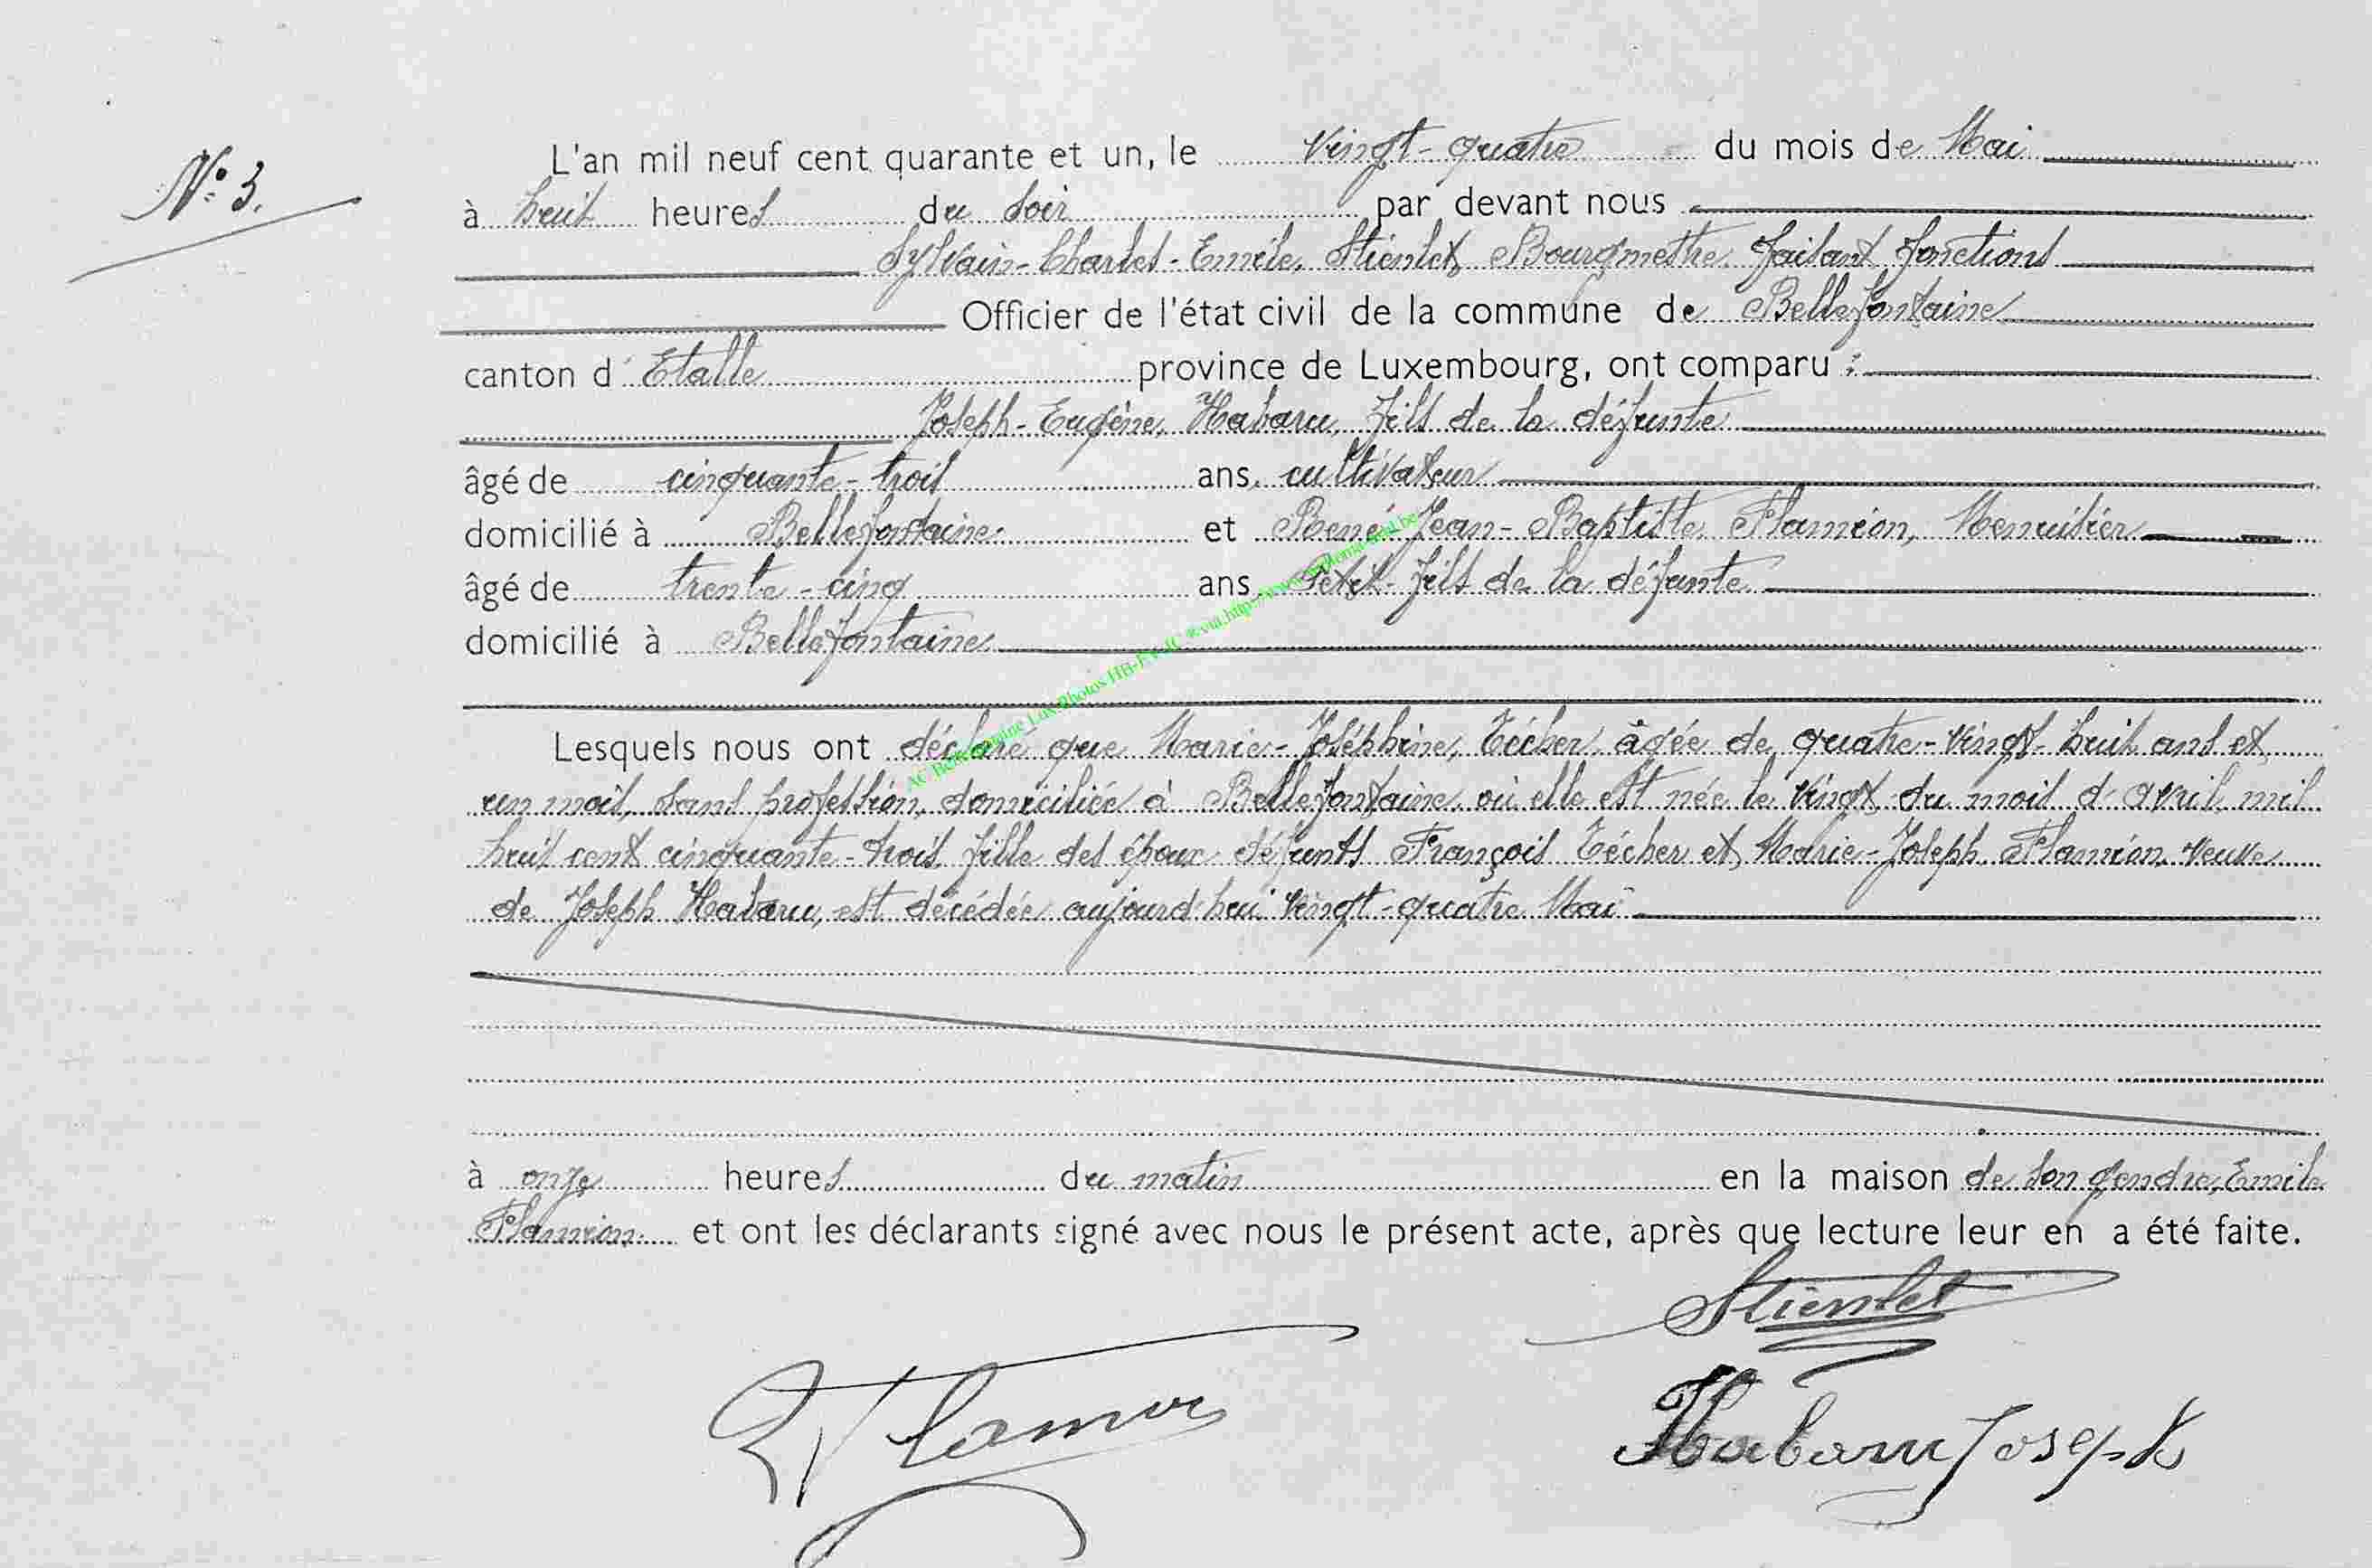 N° 3.
L'an mil neuf cent quarante et un, le vingt-quatre du mois de Mai
à huit heures du soir par devant nous
Sylvain-Charles-Emile, Stienlet, Bourgmestre faisant fonctions
Officier de l'état civil de la commune de Bellefontaine
canton d'Etalle province de Luxembourg, ont comparu :
Joseph-Eugène, Habaru, fils de la défunte
âgé de cinquante-trois ans, cultivateur
domicilié à Bellefontaine et René-Jean-Baptiste Flamion, Menuisier
âgé de trente-cinq ans, Petit-fils de la défunte
domicilié à Bellefontaine
Lesquels nous ont déclaré que Marie-Joséphine, Técher, âgée de quatre-vingt-huit ans et
un mois, sans profession, domiciliée à Bellefontaine où elle est née le vingt du mois d'avril mil
huit cent cinquante-trois, fille des époux défunts François Técher et Marie-Joseph Flamion, veuve
de Joseph Habaru, est décédée aujourd'hui vingt-quatre Mai
à onze heures du matin en la maison de son gendre, Emile
Flamion et ont les déclarants signé avec nous le présent acte, après que lecture leur en a été faite.
Stienlet
R Flamion
Habaru Joseph